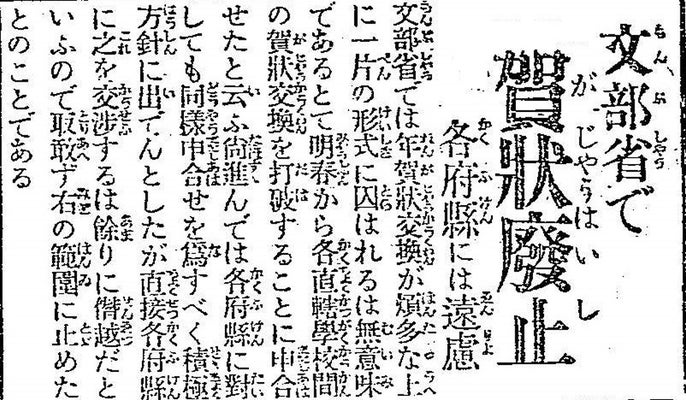 文部省で
賀狀廢止
各府縣には遠慮
文部省では年賀狀交換が煩多な上
に一片の形式に囚はれるは無意味
であるとて明春から各直轄學校間
の賀狀交換を打破することに申合
せたと云ふ尙進んでは各府縣に對
しても同樣申合せを爲すべく積極
方針に出でんとしたが直接各府縣
に之を交涉するは餘りに僭越だと
いふので取敢ず右の範圍に止めた
とのことである